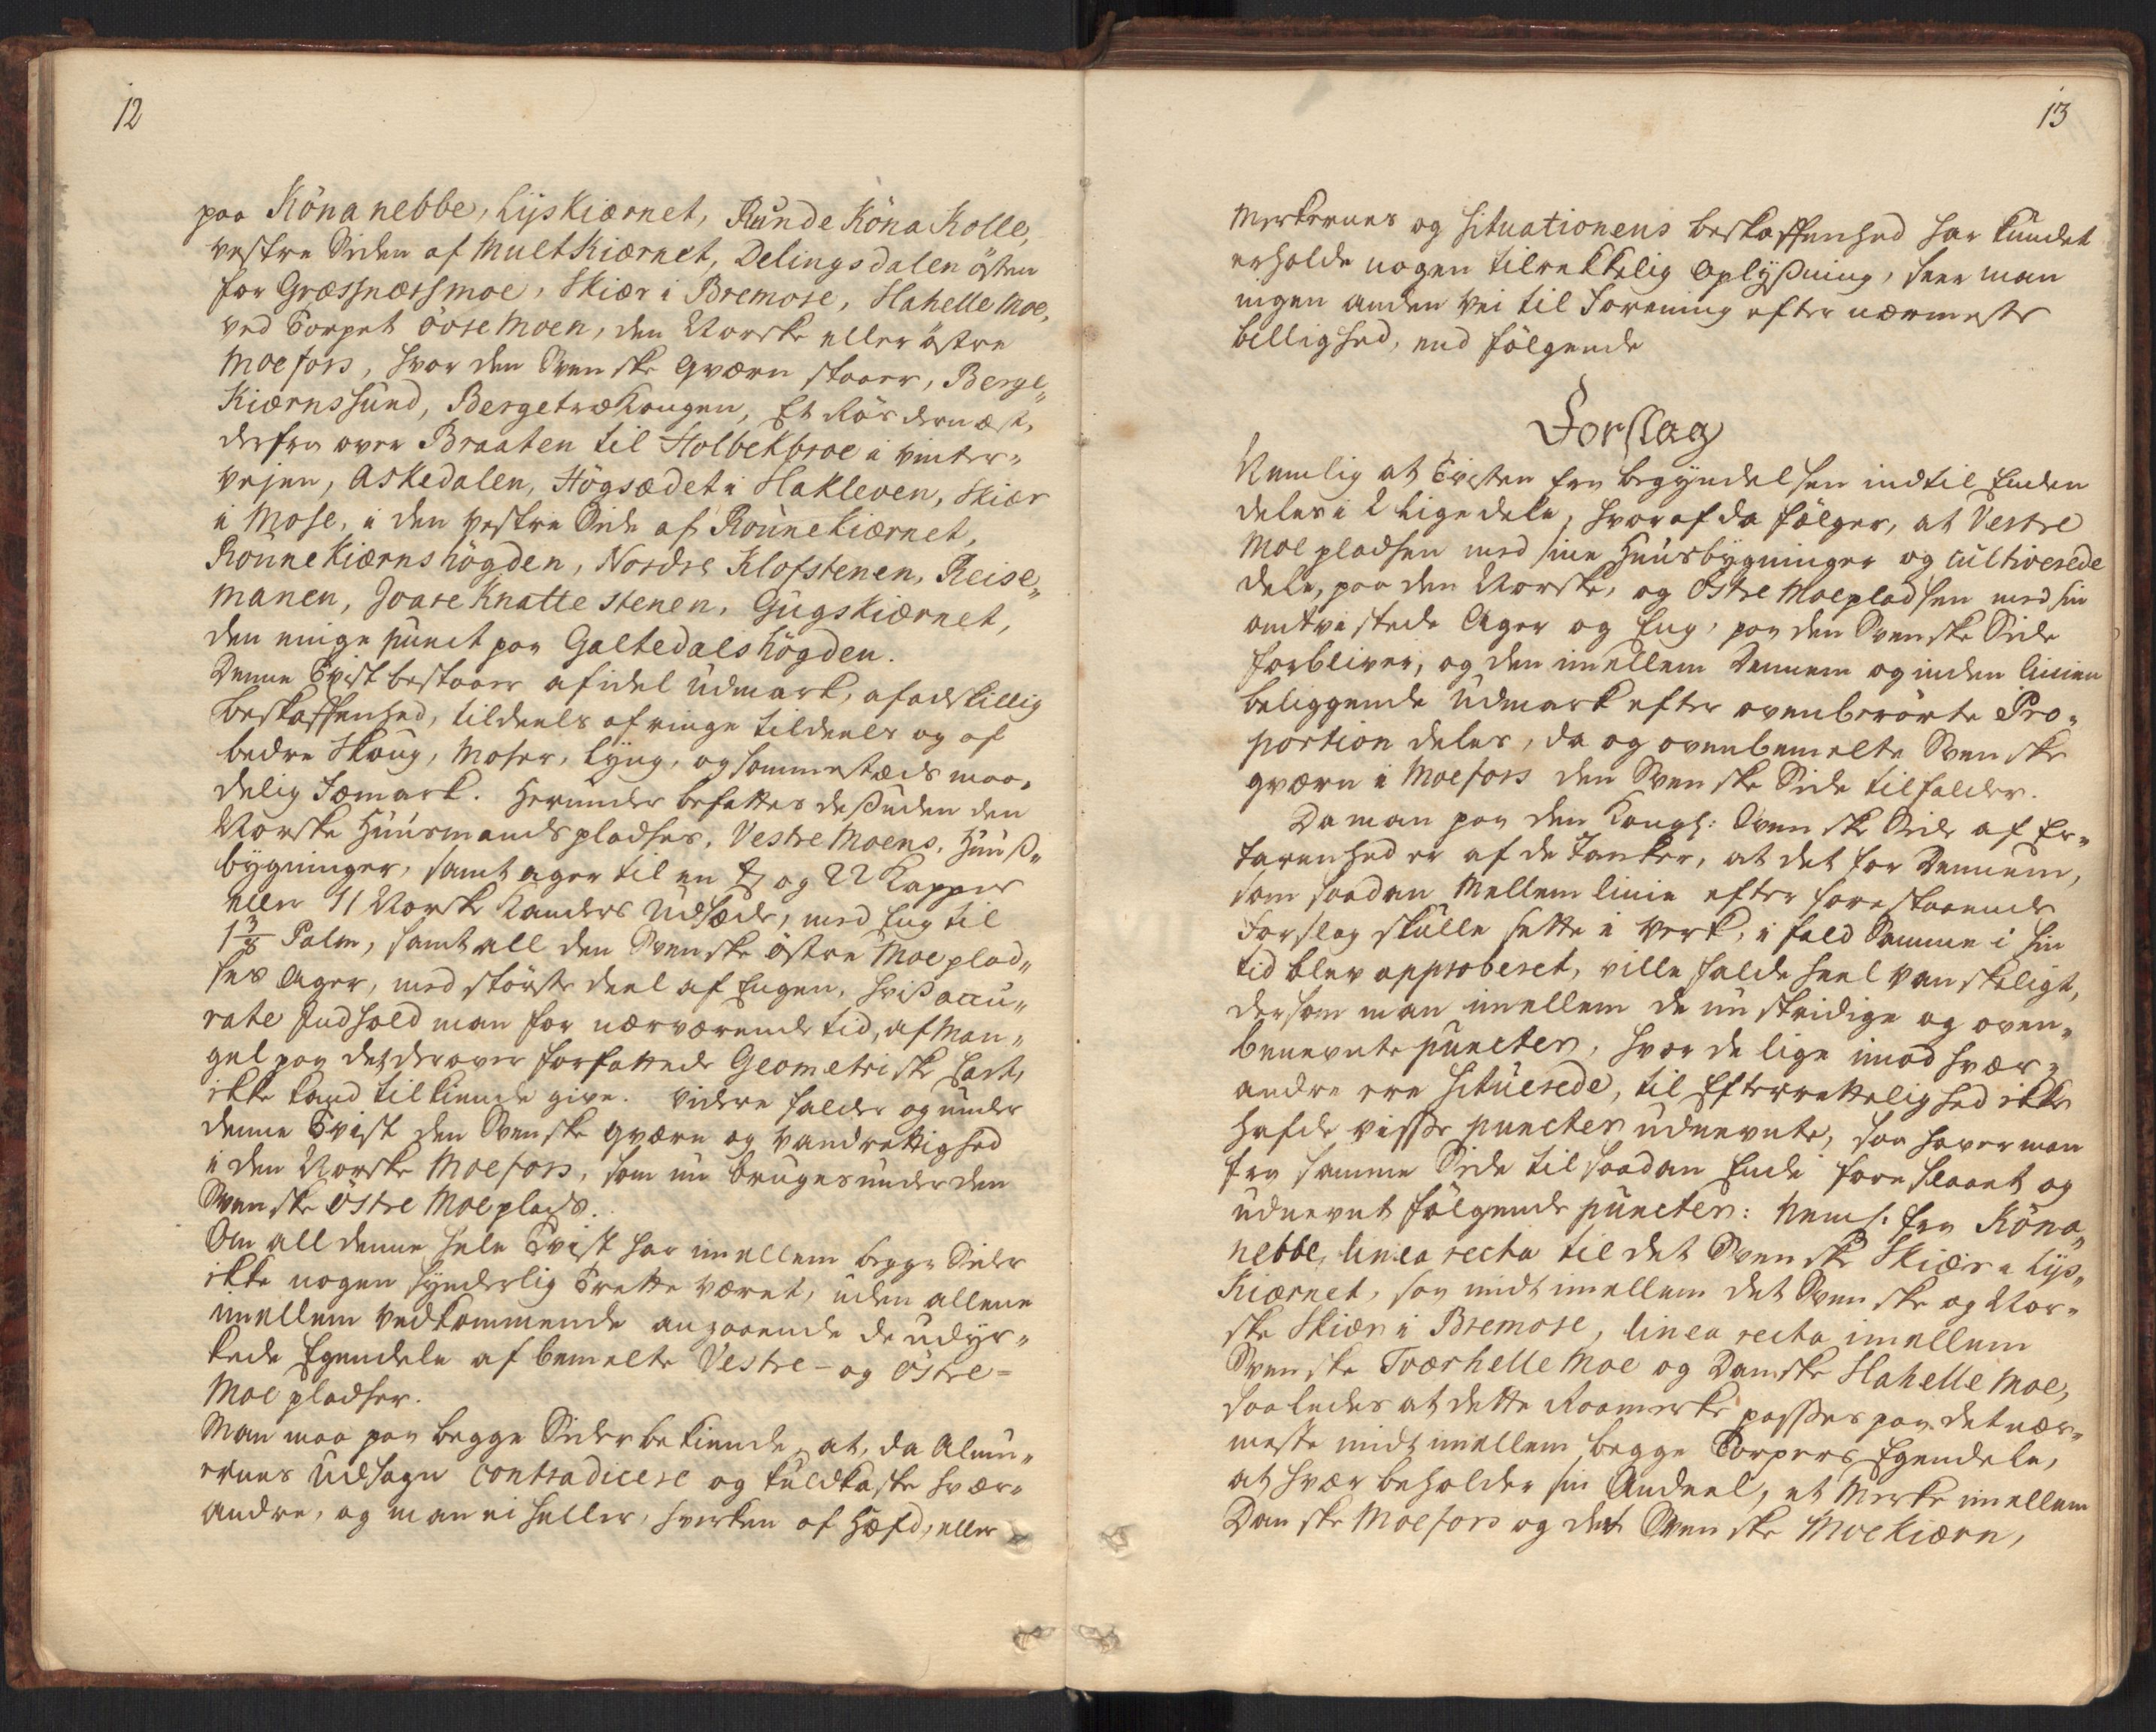 12
paa Köna nebbe, Lijskiærnet, Runde Köna Kolle,
vestre Siden af Multkiærnet, Delingsdalen östen
for Græssnæssmoe, Skiær i Bremose, Slahelle Moe,
ved Torpet öose Moen, den Norske eller östre
Moefors, hvor den Svenske qværn staaer, Berge„
Kiærnssund, Bergetræhaugen, Et Rös dernæst,
derfra over Braaten til Holbekbroe i vinter„
vejen, Askedalen, Högsædet i Hakleven, Skiær
i Mose, i den vestre Side af Rönnekiærnet,
Rönnekiærnshögden, Nordre Klofstenen, Reise„
manen, Joare Knatte stenen, Gugskiærnet,
den enige punct paa Galtedalshögden.
Denne Tvist bestaaer af idel Udmark, af adskillig
beskaffenhed, tildeels af ringe tildeels og af
bedre Skoug, Moser, Lyng, og sommestæds maa„
delig Fæmark. Herunder befattes desuden den
Norske Huusmands pladses, Vestre Moens, Huuß„
bygninger, samt ager til en Tø og 22 Kapper
eller 11 Norske Kanders Udsæde, med Eng til
1 3/8 Palm, samt all den Svenske östre Moe plad„
ses Ager, med störste deel af Engen, hviß accu„
rate Indhold man for nærværende tid, af Man„
gel paa det derover forfattede Geometriske Cart,
ikke kand tilkiende give. Videre falder og under
denne Tvist den Svenske qværn og Vandrettighed
i den Norske Moefors, som nu bruges under den
Svenske östre Moeplads.
Om all denne hele Tvist har imellem begge Sider
ikke nogen synderlig Trette været, uden allene
imellem vedkommende angaaende de udyr„
kede Egendele af bemelte Vestre- og östre-
Moe pladser.
Man maa paa begge Sider bekiende, at, da Almu„
ernes Udsagn contradicere og kuldkaste hver„
andre, og man ei heller, hverken af Hæfd, eller
13
Merkernes og Situationens beskaffenhed har kundet
erholde nogen tilrekkelig oplyßning, seer man
ingen anden vei til Forening efter nærmeste
billighed, end fölgende
Forslag
Nemlig at Tvisten fra begyndelsen indtil Enden
deeles i 2 lige dele, hvoraf da fölger, at Vestre
Moe pladsen med sine Huusbygninger og cultiverede
dele, paa den Norske, og Östre Moepladsen med sin
omtvistede Ager og Eng, paa den Svenske Side
forbliver, og den imellem Dennem og inden linien
beliggende Udmark efter ovenberörte Pro„
portion deles, da og ovenbemelte Svenske
qværn i Moefors den Svenske Side tilfalder.
Da man paa den Kongl: Svenske Side af Er„
farenhed er af de Tanker, at det for Dennem,
som saadan Mellemlinie efter forestaaende
Forslag skulle sette i verk, i fald Samme i sin
tid blev approberet, ville falde heel vanskeligt,
dersom man imellem de nu stridige og oven„
benevnte puncter, hvor de lige imod hver„
andre ere Situerede, til Efterrettelighed ikke
hafde visse puncter udnevnte, saa haver man
fra samme Side til saadan Ende foreslaaet og
udnevnt fölgende puncter: Neml: fra Köna„
nebbe, linea recta til det Svenske Skiær i Lijs„
Kiærnet, saa midt imellem det Svenske og Nor„
ske Skiær i Bremose, linea recta imellem
Svenske Tværhelle Moe og Danske Slahelle Moe,
saaledes at dette Raamerke passes paa det nær„
meste midt imellem begge Torpers Egendele,
at hver beholder sin Andeel, et Merke imellem
Danske Moefors og det Svenske Moekiærn,